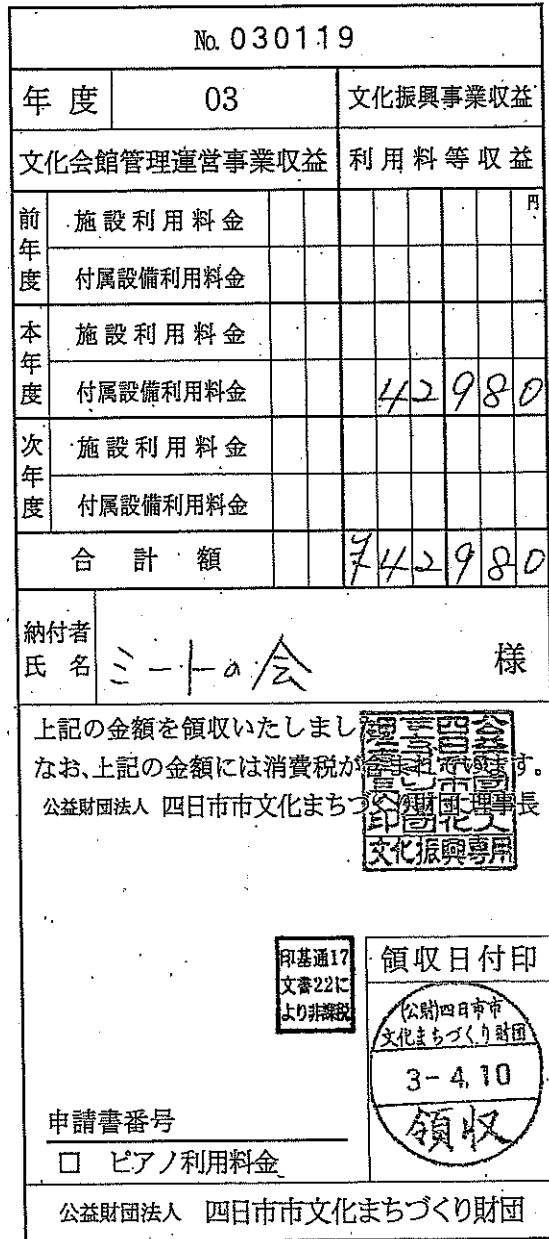 No. 030119
年度 03 文化振興事業収益
文化会館管理運営事業収益 利用料等収益
前年度 施設利用料金 円
付属設備利用料金
本年度 施設利用料金
付属設備利用料金 42980
次年度 施設利用料金
付属設備利用料金
合計額 ¥42980
納付者氏名 ミートの会 様
上記の金額を領収いたしまし
なお、上記の金額には消費税が含まれています。
公益財団法人 四日市市文化まちづくり財団理事長
文化振興専用
印基通17
文書22に
より非課税
領収日付印
(公財)四日市市
文化まちづくり財団
3-4.10
領収
申請書番号
□ ピアノ利用料金
公益財団法人 四日市市文化まちづくり財団